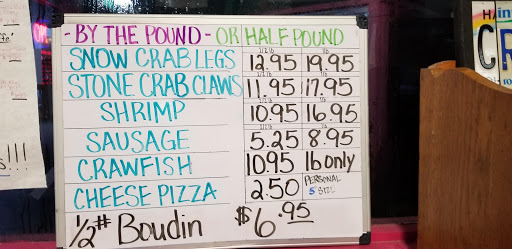 - BY THE POUND - OR HALF POUND
SNOW CRAB LEGS 1/2 lb 12.95 1lb 19.95
STONE CRAB CLAWS 11.95 17.95
SHRIMP 10.95 16.95
SAUSAGE 5.25 8.95
CRAWFISH 10.95 lb only
CHEESE PIZZA 2.50 PERSONAL
5 SIZE
1/2# Boudin $6.95